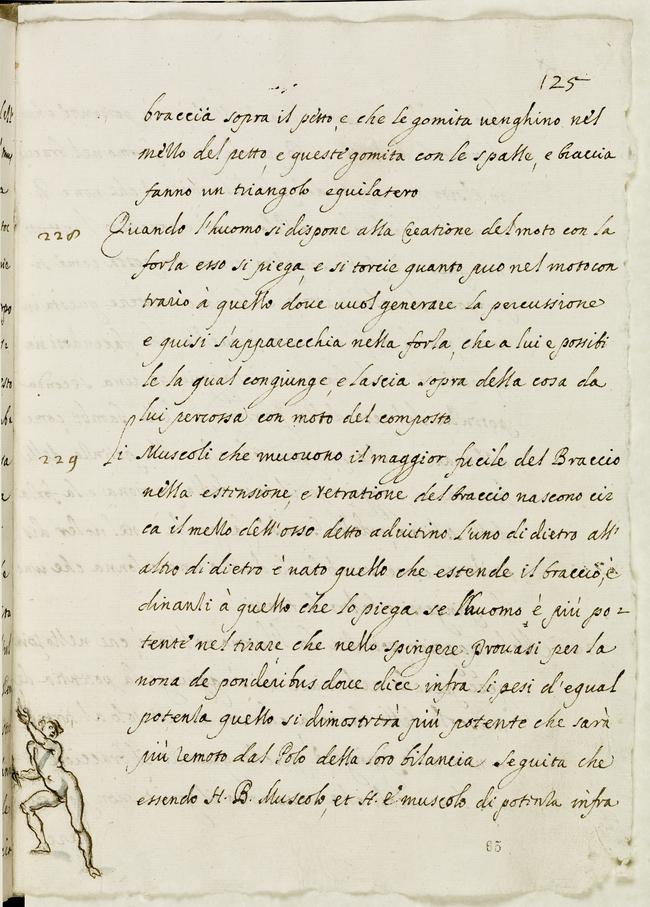 125
braccia sopra il petto, e che le gomita venghino nel
mezzo del petto, e queste gomita con le spalle, e braccia
fanno un triangolo equilatero
228 Quando l'huomo si dispone alla Creatione del moto con la
forza esso si piega, e si torcie quanto puo nel moto con
trario à quello dove vuol generare la percussione
e quisi s'apparecchia nella forza, che a lui e possibi
le la qual congiunge, e lascia sopra della cosa da
lui percossa con moto del composto
229 Li Muscoli che muovono il maggior fucile del Braccio
nella estensione, e retratione del braccio nascono cir
ca il mezzo dell'osso detto adiutino l'uno di dietro all'
altro di dietro è nato quello che estende il braccio, è
dinanzi à quello che lo piega se l'huomo è più po=
tente nel tirare che nello spingere Provasi per la
nona de ponderibus dove dice infra li pesi d'egual
potenza quello si dimostrerà più potente che sarà
più remoto dal Polo della loro bilancia Seguita che
essendo H. B. Muscolo, et H. e muscolo di potenza infra
85